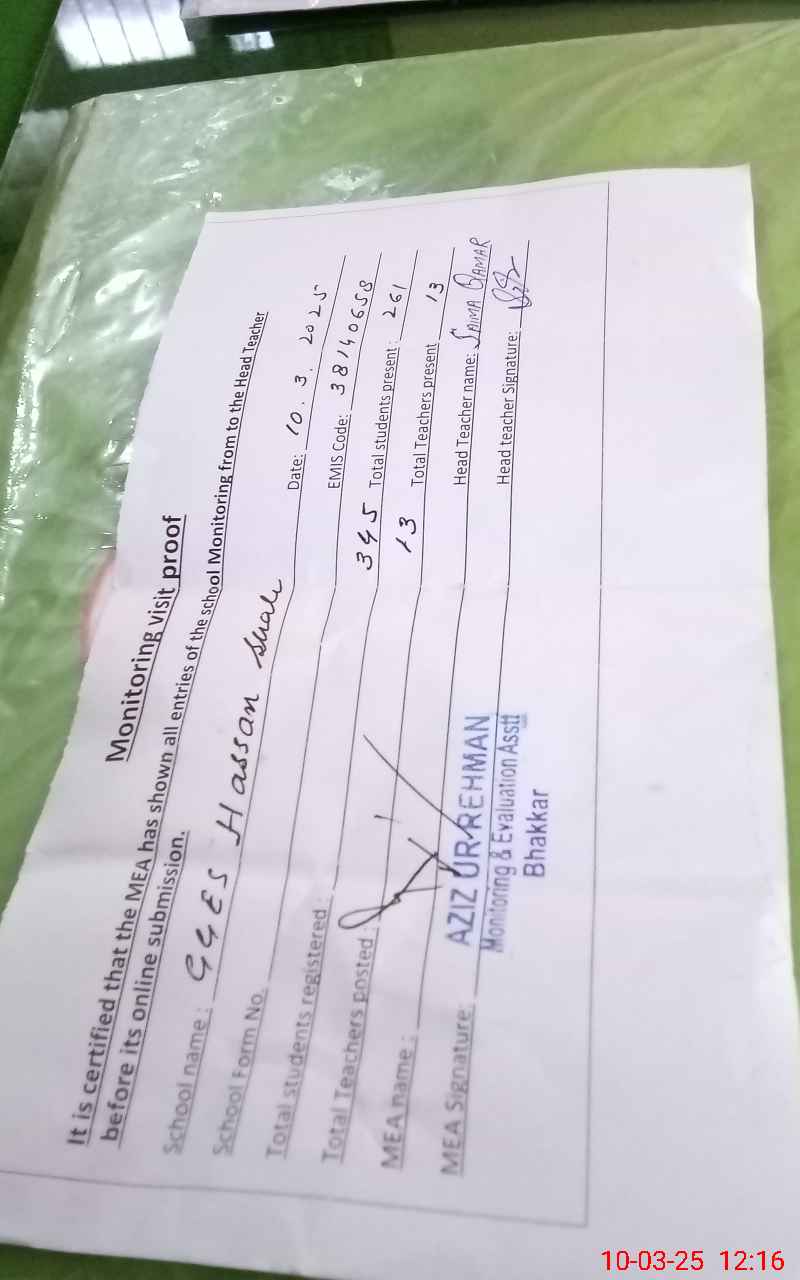 Monitoring visit proof
It is certified that the MEA has shown all entries of the school Monitoring from to the Head Teacher
before its online submission.
School name : GGES Hassan Date: 10.3.2025
School Form No. EMIS Code: 38140658
Total students registered : 345 Total students present : 261
Total Teachers posted : 13 Total Teachers present 13
MEA name : Head Teacher name: SAIMA QAMAR
MEA Signature: Head teacher Signature:
AZIZ UR REHMAN
Monitoring & Evaluation Asstt
Bhakkar
10-03-25 12:16